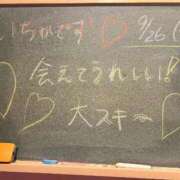 いちかです♡ 9/26（
会えてうれしい!!
♡ 大スキ〜 ♡